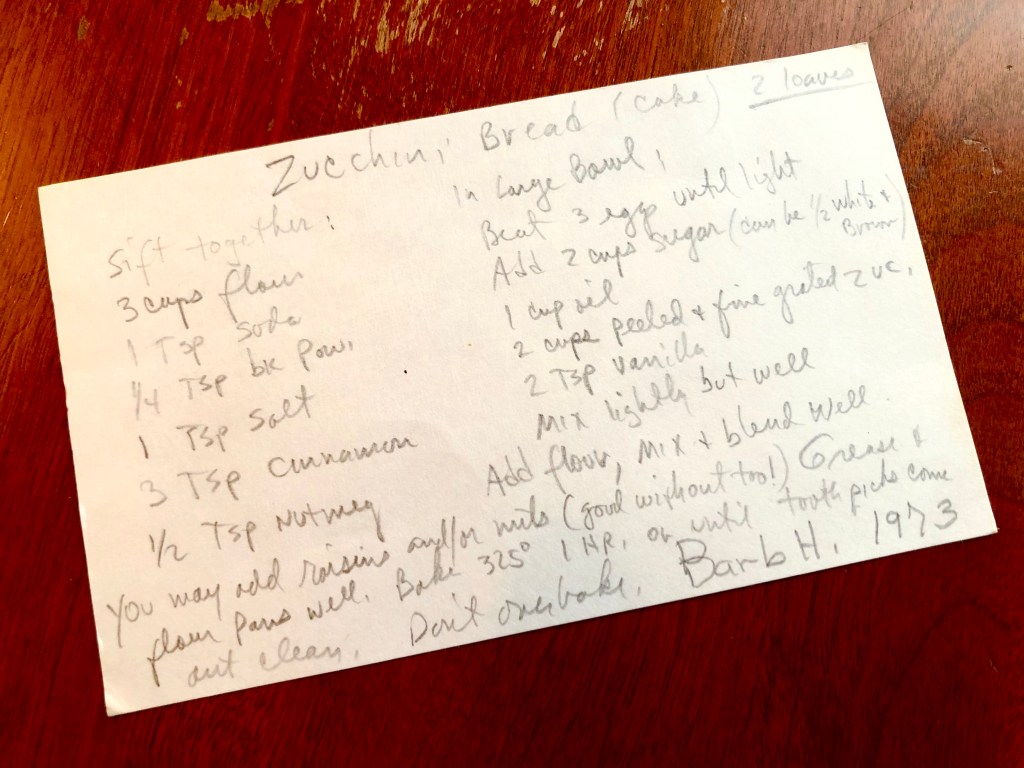 Zucchini Bread (cake) 2 loaves
Sift together:
3 cups flour
1 Tsp soda
1/4 Tsp bk pow.
1 Tsp Salt
3 Tsp Cinnamon
1/2 Tsp Nutmeg
In Large Bowl;
Beat 3 eggs until light
Add 2 cups Sugar (can be 1/2 white &
Brown)
1 cup oil
2 cups peeled & fine grated zuc.
2 Tsp Vanilla
Mix lightly but well
Add flour, Mix & blend Well.
You may add raisins and/or nuts (good without too!) Grease &
flour pans well. Bake 325° 1 HR. or until toothpicks come
out clean. Don't overbake. Barb H. 1973